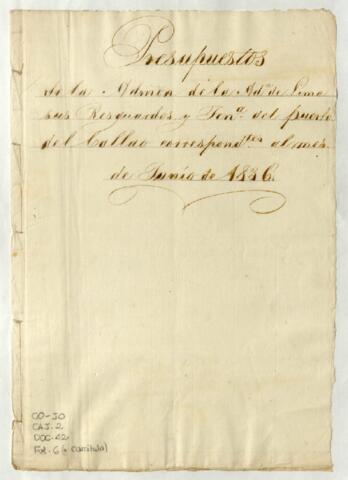 Presupuestos
de la Admon de la Ad.ª de Lima
sus Resguardos y Ten.ª del puerto
del Callao correspond.tes al mes
de Junio de 1836.
OO-JO
CAJ. 2
DOC. 42
Fol. 6 (+ carátula)